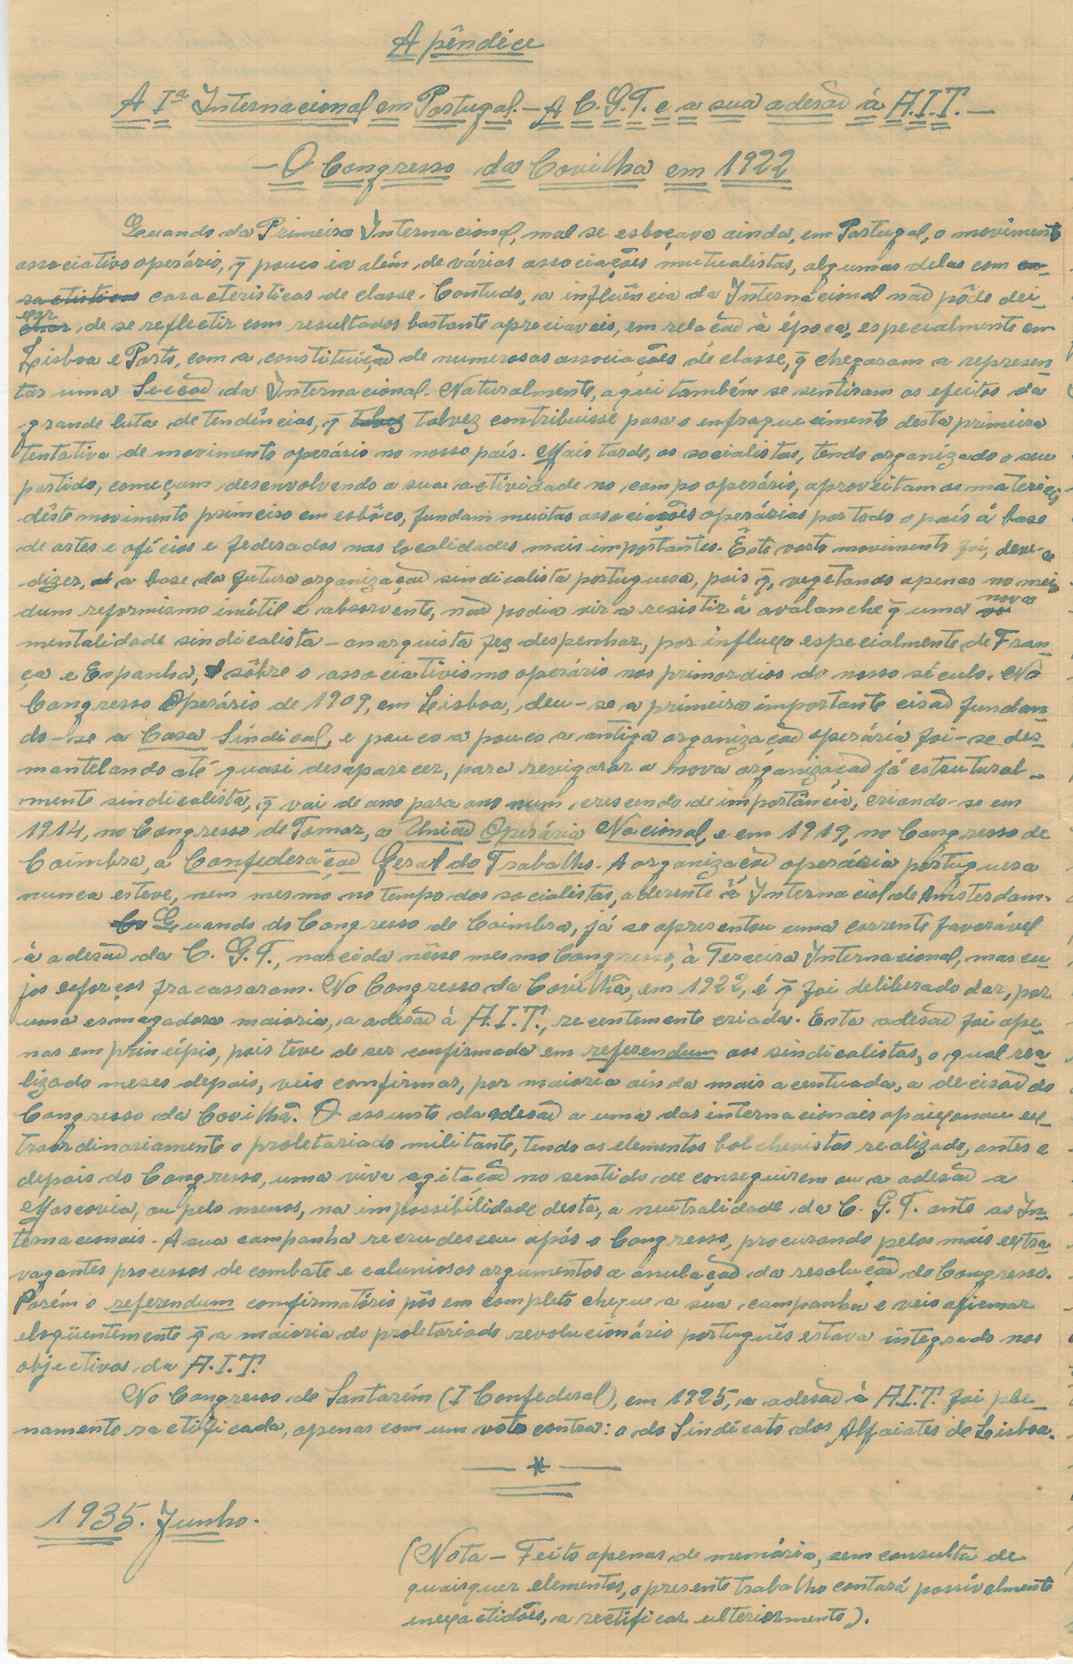 Apêndice
A Iª Internacional em Portugal. — A C. G. T. e a sua adesão à A. I. T. —
— O Congresso da Covilhã em 1922
Quando da Primeira Internacional, mal se esboçava ainda, em Portugal, o movimento
associativo operário, q̃ pouco ia além de várias associações mutualistas, algumas delas com ca-
racteristicas caracteristicas de classe. Contudo, a influência da Internacional não pôde dei-
xar de se reflectir com resultados bastante apreciaveis, em relação à época, especialmente em
Lisboa e Porto, com a constituição de numerosas associações de classe, q̃ chegaram a represen-
tar uma Secção da Internacional. Naturalmente, aqui também se sentiram os efeitos da
grande luta de tendências, q̃ talvez talvez contribuisse para o enfraquecimento desta primeira
tentativa de movimento operário no nosso país. Mais tarde, os socialistas, tendo organizado o seu
partido, começam desenvolvendo a sua actividade no campo operário, aproveitam os materiais
dêste movimento primeiro em esbôço, fundam muitas associações operárias por todo o país à base
de artes e ofícios e federados nas localidades mais importantes. Êste vasto movimento foi, deve-se
dizer, a base da futura organização sindicalista portuguesa, pois q̃, vegetando apenas no meio
dum reformismo inútil e absorvente, não podia vir a resistir à avalanche q̃ uma nova
mentalidade sindicalista-anarquista fez despenhar, por influxo especialmente de Fran-
ça e Espanha, sôbre o associativismo operário nos primordios do nosso século. No
Congresso Operário de 1909, em Lisboa, deu-se a primeira importante cisão fundan-
do-se a Casa Sindical, e pouco a pouco a antiga organização operária foi-se des-
mantelando até quasi desaparecer, para revigorar a nova organização já estrutural-
mente sindicalista, q̃ vai de ano para ano num crescendo de importância, criando-se em
1914, no Congresso de Tomar, a União Operária Nacional, e em 1919, no Congresso de
Coimbra, a Confederação Geral do Trabalho. A organização operária portuguesa
nunca esteve, nem mesmo no tempo dos socialistas, aderente à Internacional de Amsterdam.
Quando do Congresso de Coimbra, já se apresentou uma corrente favorável
à adesão da C. G. T., nascida nêsse mesmo Congresso, à Terceira Internacional, mas cu-
jos esforços fracassaram. No Congresso da Covilhã, em 1922, é q̃ foi deliberado dar, por
uma esmagadora maioria, a adesão à A. I. T., recentemente criada. Esta adesão foi ape-
nas em princípio, pois teve de ser confirmada em referendum aos sindicalistas, o qual rea-
lizado meses depois, veio confirmar, por maioria ainda mais acentuada, a decisão do
Congresso da Covilhã. O assunto da adesão a uma das internacionais apaixonou ex-
traordinariamente o proletariado militante, tendo os elementos bolchevistas realizado, antes e
depois do Congresso, uma viva agitação no sentido de conseguirem ou a adesão a
Moscovia, ou pelo menos, na impossibilidade desta, a neutralidade da C. G. T. ante as In-
ternacionais. A sua campanha recrudesceu após o Congresso, procurando pelos mais extra-
vagantes processos de combate e caluniosos argumentos a anulação da resolução do Congresso.
Porém o referendum confirmatório pôs em completo cheque a sua campanha e veio afirmar
eloqüentemente q̃ a maioria do proletariado revolucionário português estava integrado nos
objectivos da A. I. T.
No Congresso de Santarém (I Confederal), em 1925, a adesão à A.I.T. foi ple-
namente ractificada, apenas com um voto contra: o do Sindicato dos Alfaiates de Lisboa.
— * —
1935. Junho.
(Nota — Feito apenas de memória, sem consulta de
quaisquer elementos, o presente trabalho contará possívelmente
inexactidões, a rectificar ulteriormente).